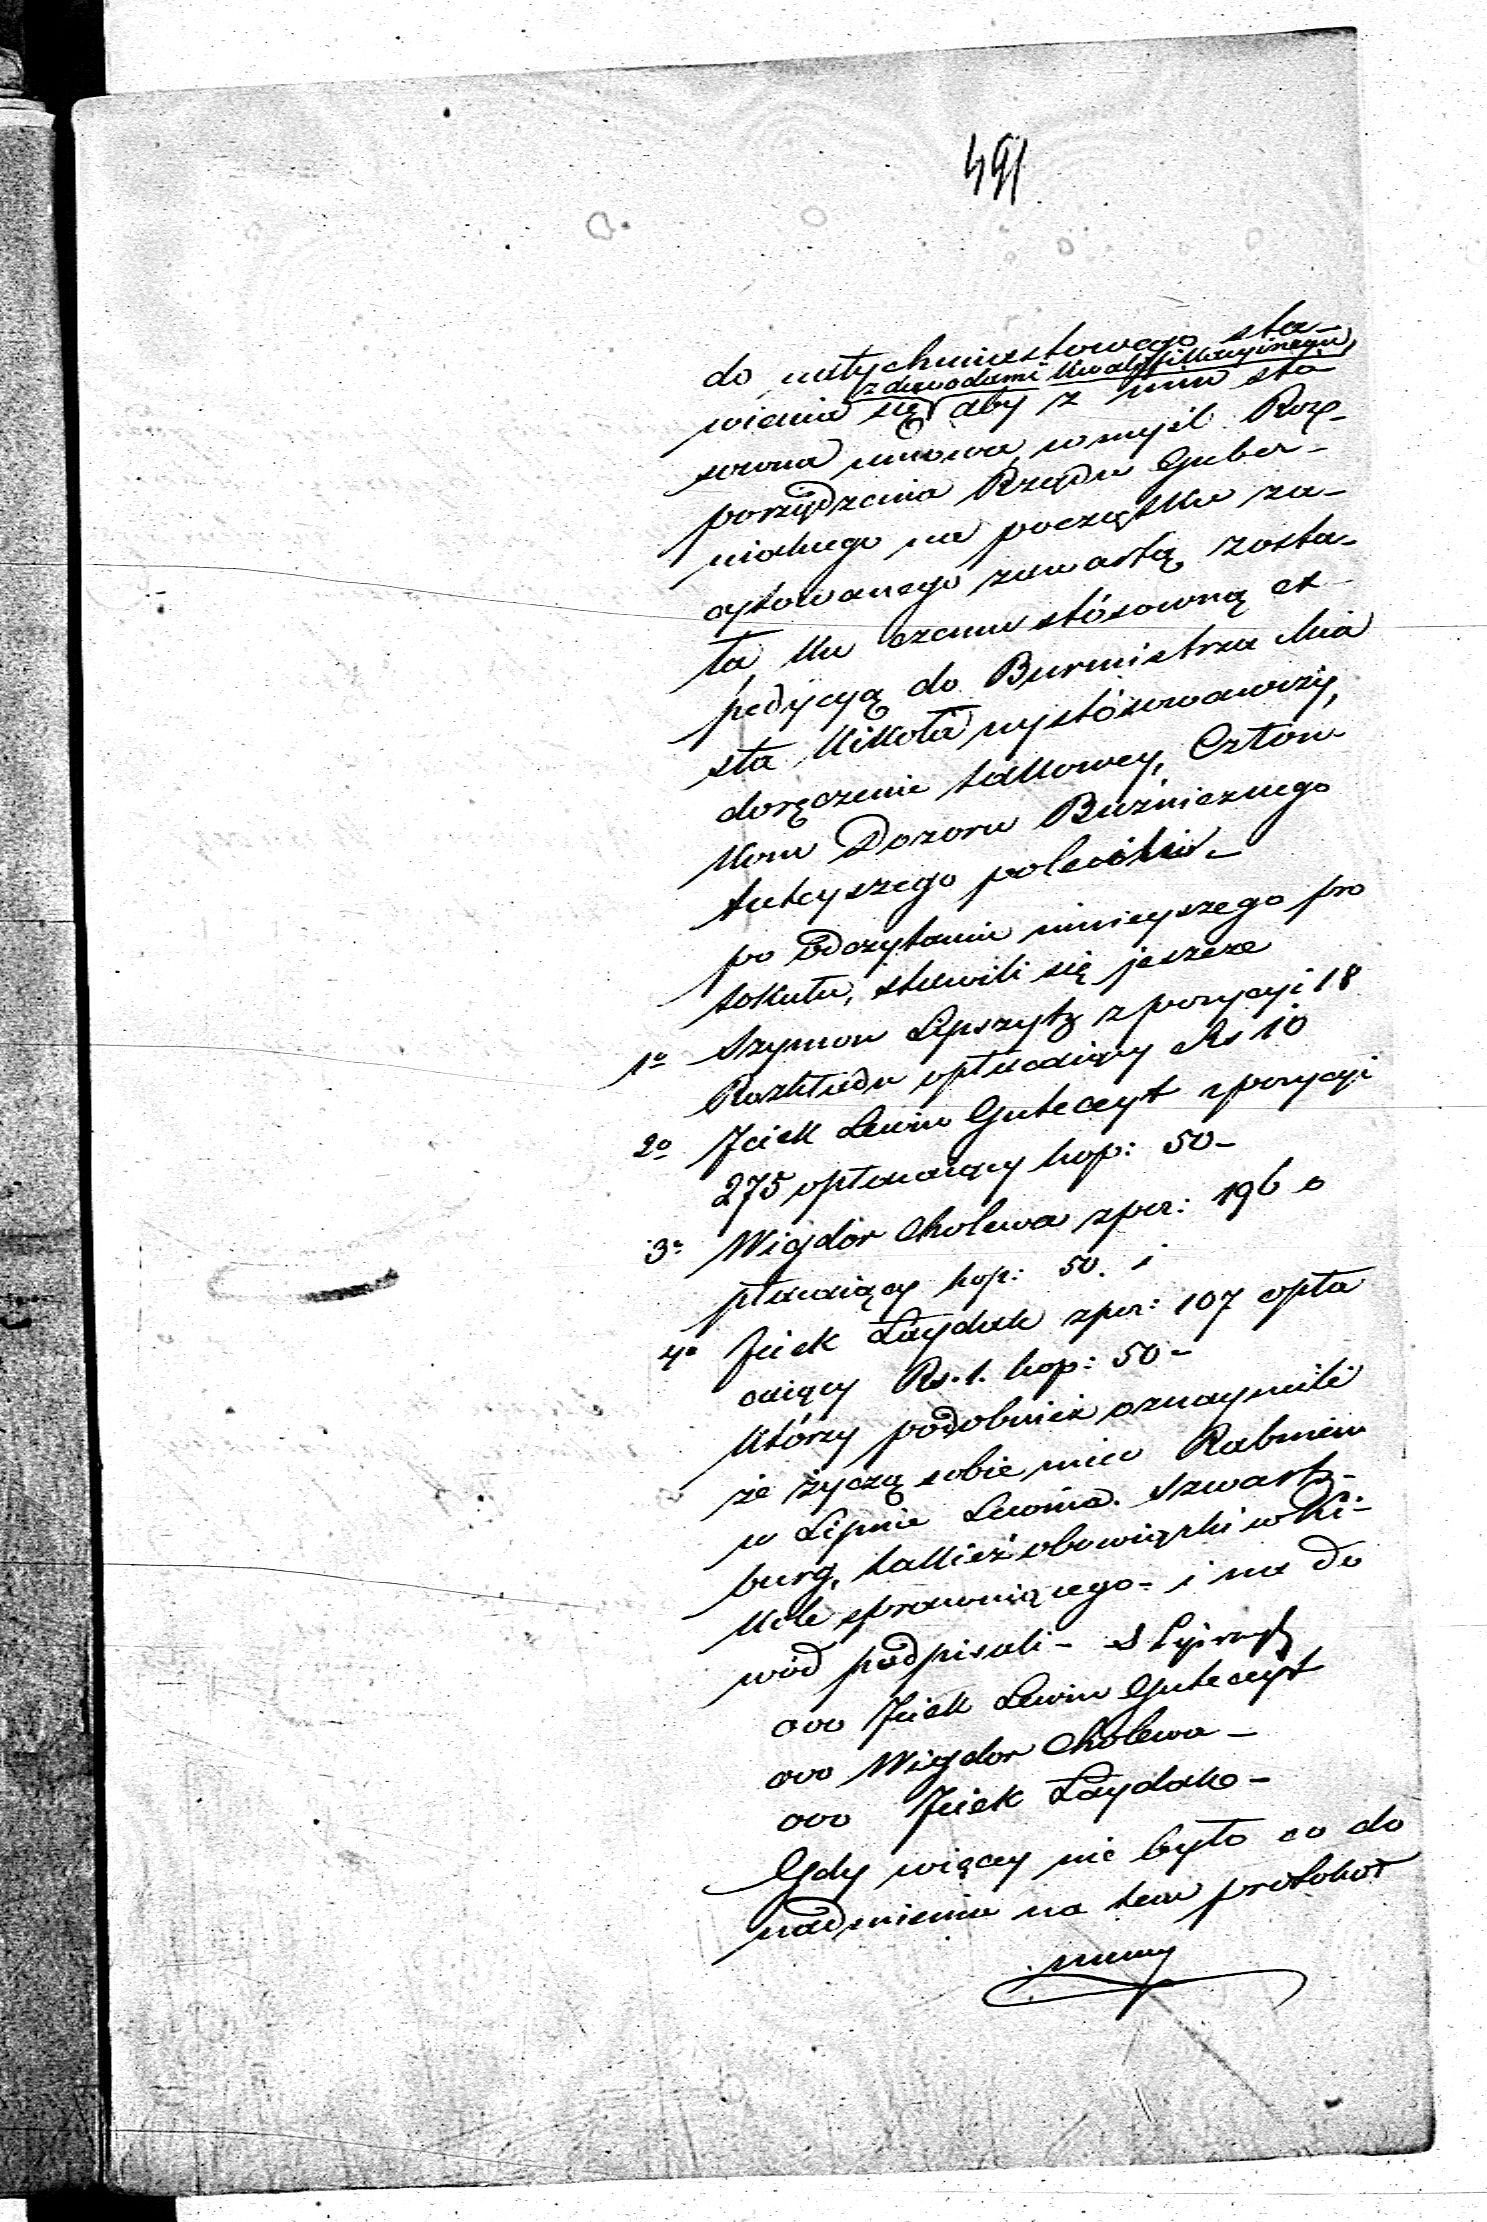 491
do natychmiastowego sta-
z dowodami kwalifikacyinemi,
wienia się aby z nim stó-
sowna umowa, w myśl Roz-
porządzenia Rządu Guber-
nialnego na początku za-
cytowanego zawartą zosta-
ła, ku czemu stósowną ex-
pedycyą do Burmistrza Mia
sta Kikoła wystósowawszy,
doręczenie takowey, Człon-
kom Dozoru Bużnicznego
tuteyszego polecił
po odczytaniu ninieyszego pro
tokułu, stawili się jeszcze
1o Szymon Lipszytz z pozycyi 18
Rozkładu opłacaiący Rs 10
2o Jcick Lewin Gutceyt z pozycyi
275 opłacaiący kop: 50-
3o Wigdor Cholewa z poz: 196 o
płacaiący kop: 50. i
4o Jcick Łaydak z poz: 107 opła
caiący Rs. 1. kop: 50-
którzy podobnież oznaymili
że życzą sobie mieć Rabinem
w Lipnie Lewina Szwartz-
burg, takież obowiązki w Ki-
kole sprawuiącego- i na do
wód podpisali- S Lipszytz
ooo Jcick Lewin Gutceyt
ooo Wigdor Cholewa -
ooo Jcick Łaydak -
Gdy więcey nie było co do
nadmienienia na tem protokoł